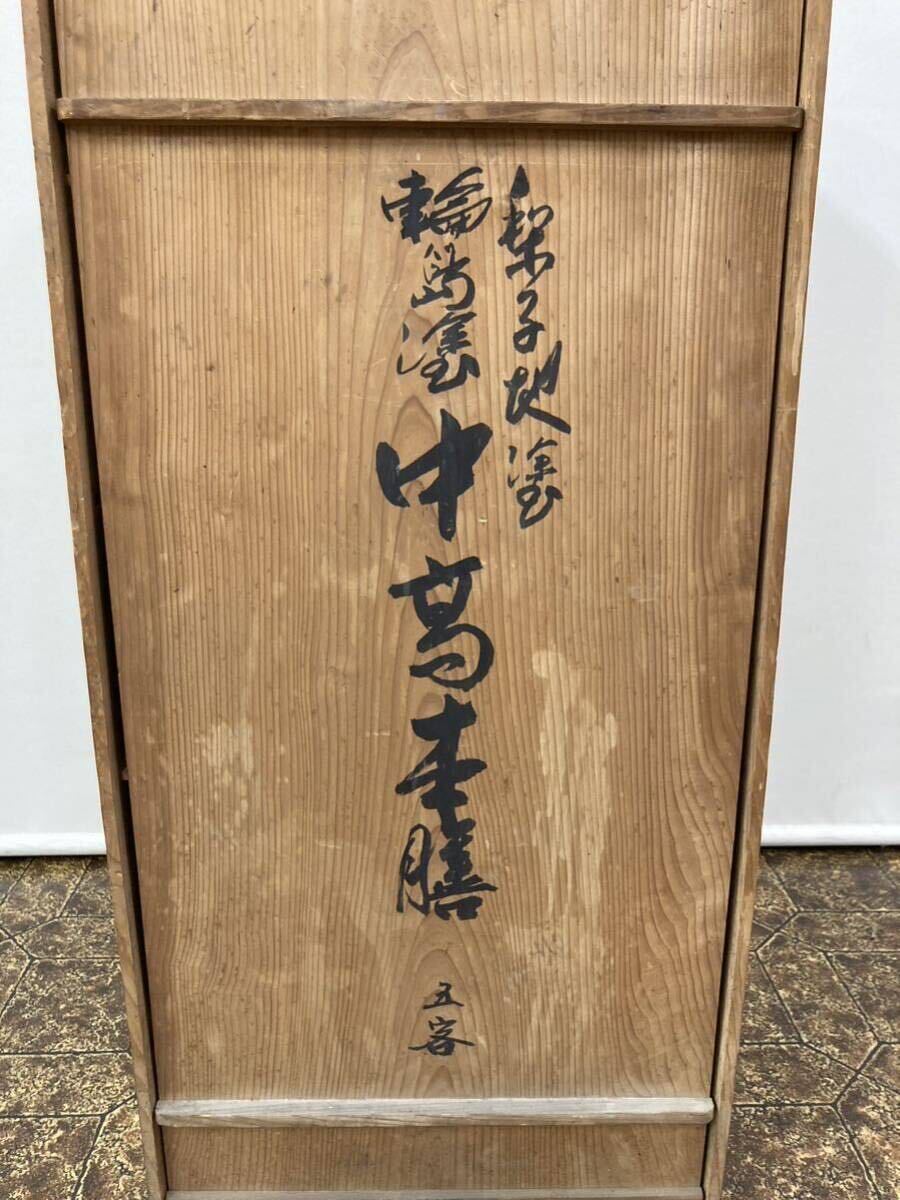 梨子地塗
輪島塗 中高本膳 五客